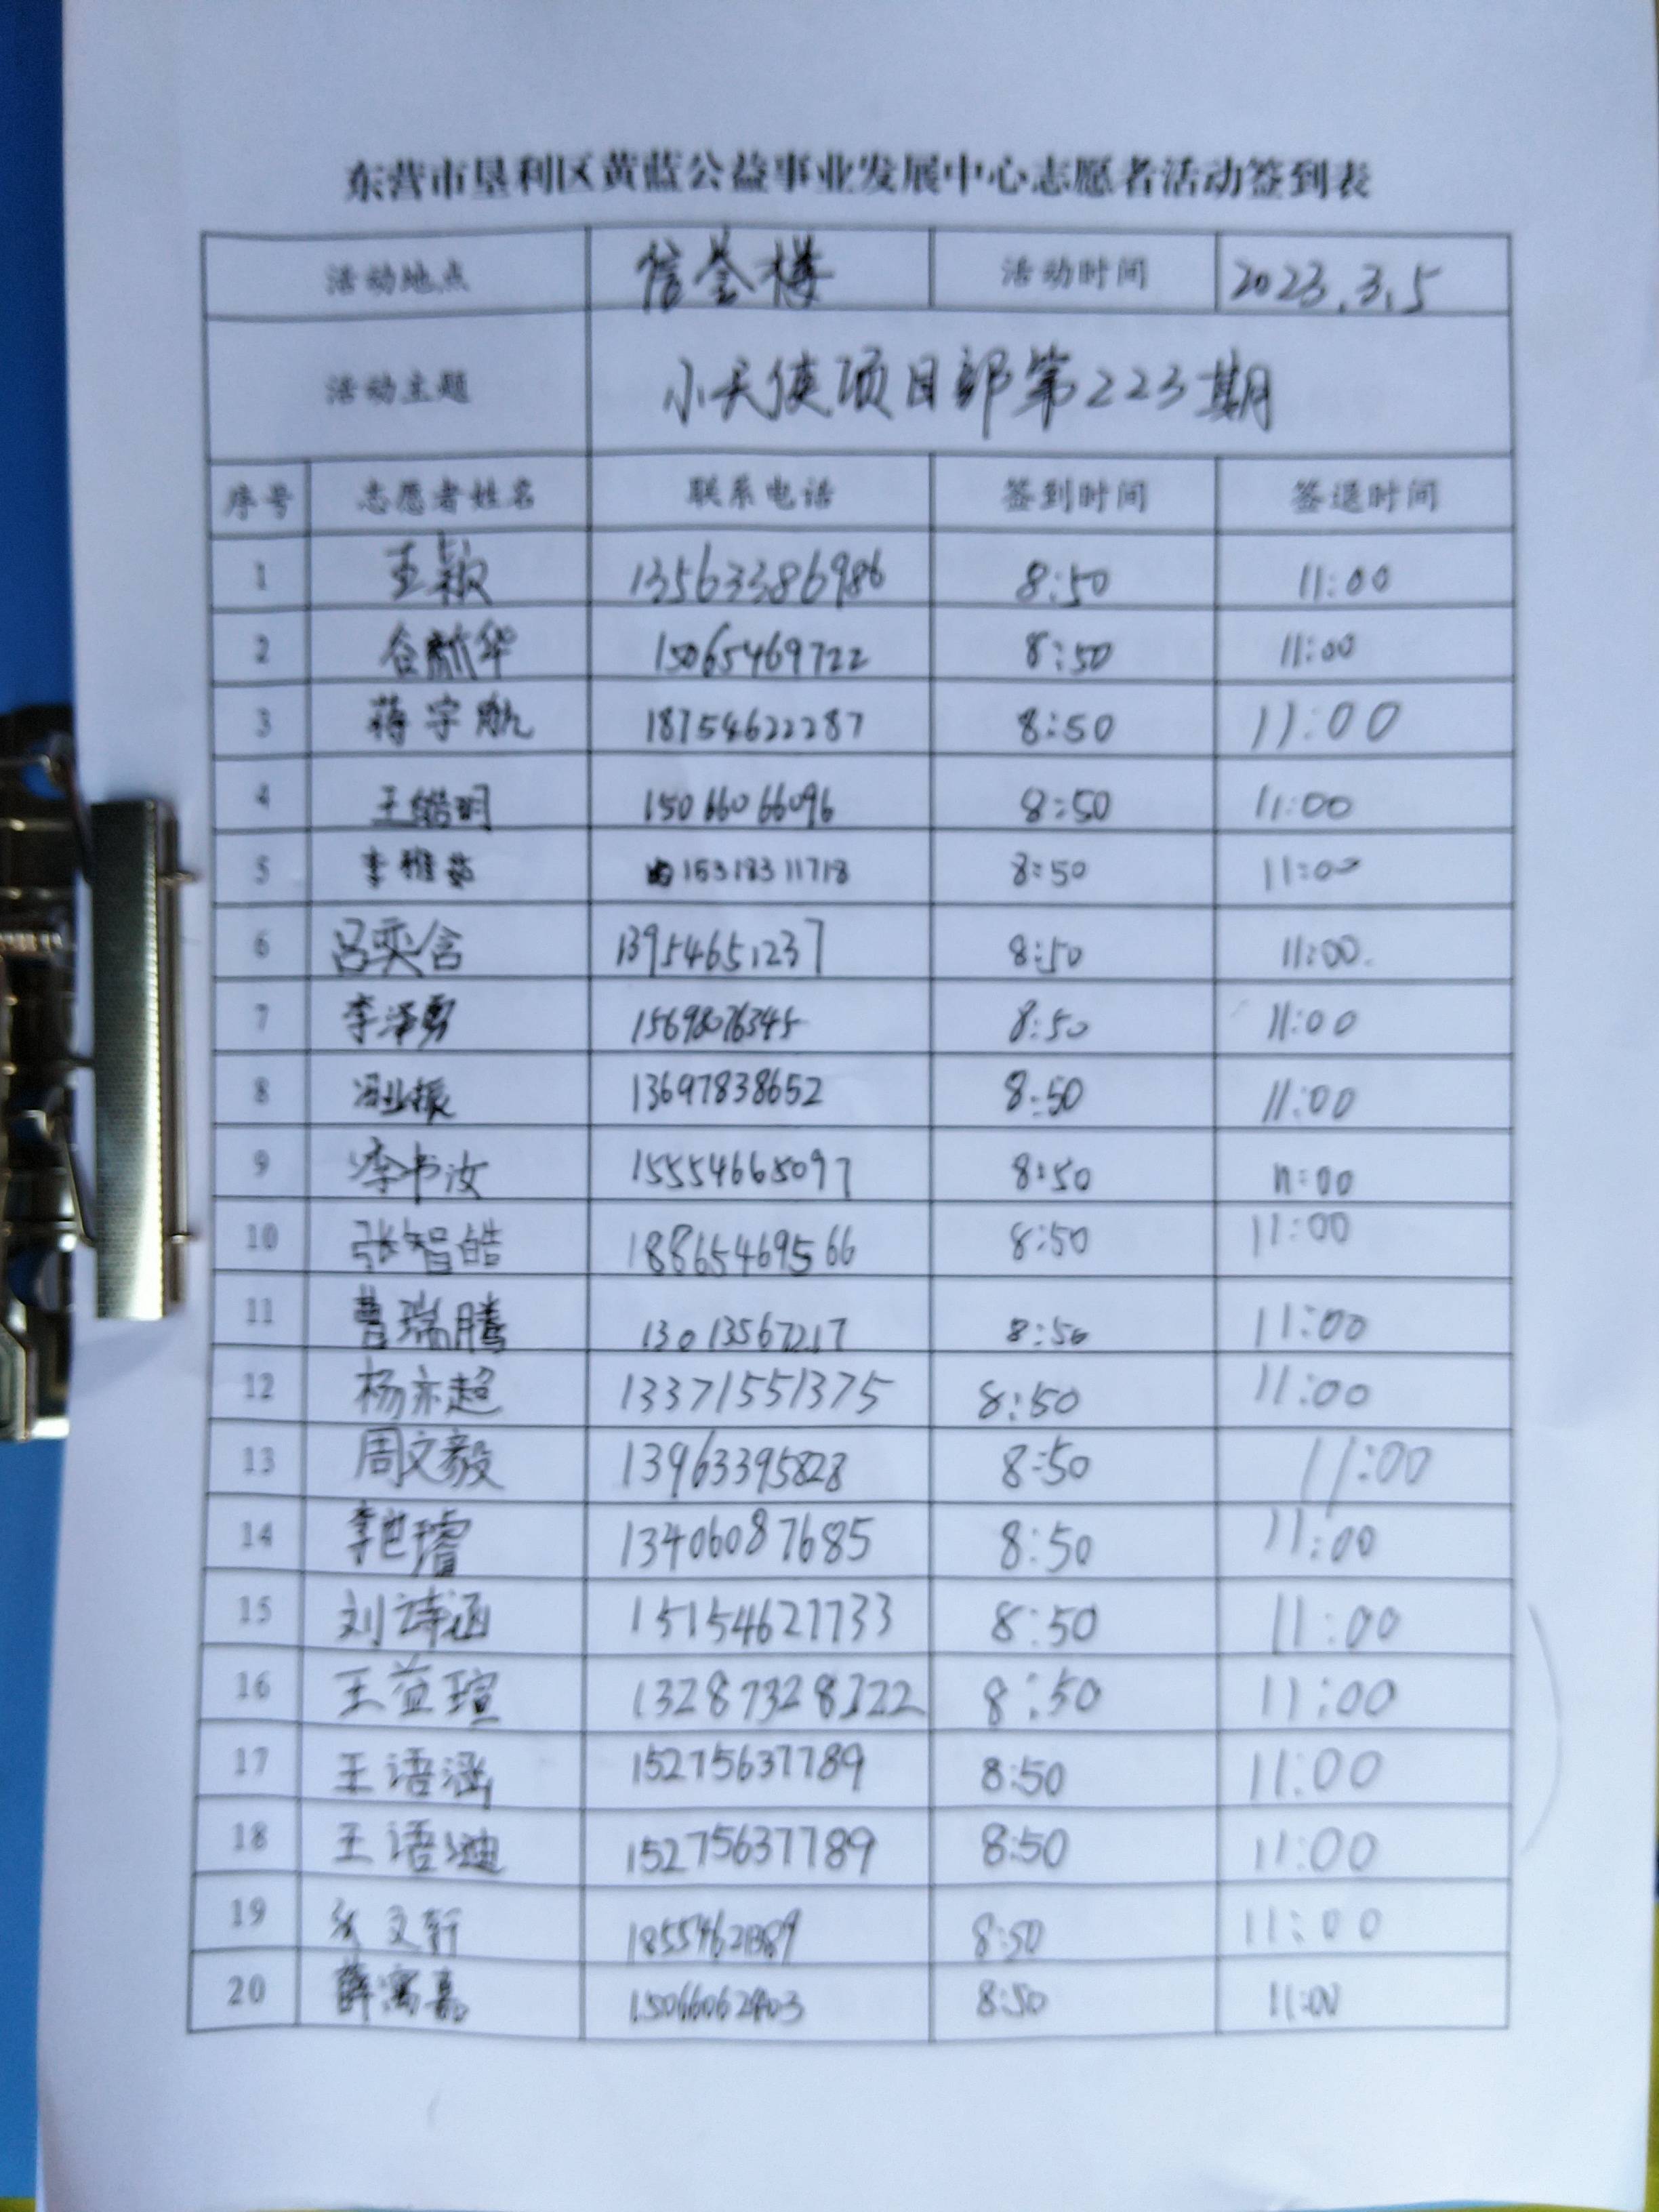 东营市垦利区黄蓝公益事业发展中心志愿者活动签到表
活动地点 信誉楼 活动时间 2023.3.5
活动主题 小天使项目部第223期
序号 志愿者姓名 联系电话 签到时间 签退时间
1 王颖 13563386986 8:50 11:00
2 15065469722 8:50 11:00
3 蒋宇航 18754622287 8:50 11:00
4 王皓明 15066066096 8:50 11:00
5 李雅茹 15318311718 8:50 11:00
6 吕奕含 13954651237 8:50 11:00.
7 李泽勇 15698076345 8:50 11:00
8 13697838652 8:50 11:00
9 李书汝 15554665097 8:50 11:00
10 张智皓 18865469566 8:50 11:00
11 曹瑞腾 13013567217 8:50 11:00
12 杨亦超 13371551375 8:50 11:00
13 周文毅 13963395828 8:50 11:00
14 13406087685 8:50 11:00
15 刘诗涵 15154627733 8:50 11:00
16 王益瑄 13287328222 8:50 11:00
17 王语涵 15275637789 8:50 11:00
18 王语迪 15275637789 8:50 11:00
19 8:50 11:00
20 薛寓嘉 8:50 11:00